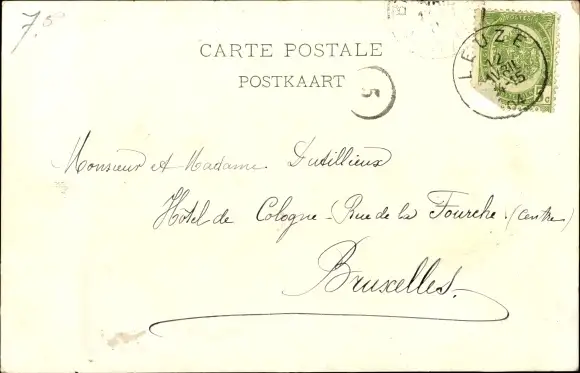 7.5
CARTE POSTALE
POSTKAART
LEUZE
5
Monsieur et Madame Dutillieux
Hôtel de Cologne - Rue de la Fourche (Centre)
Bruxelles.